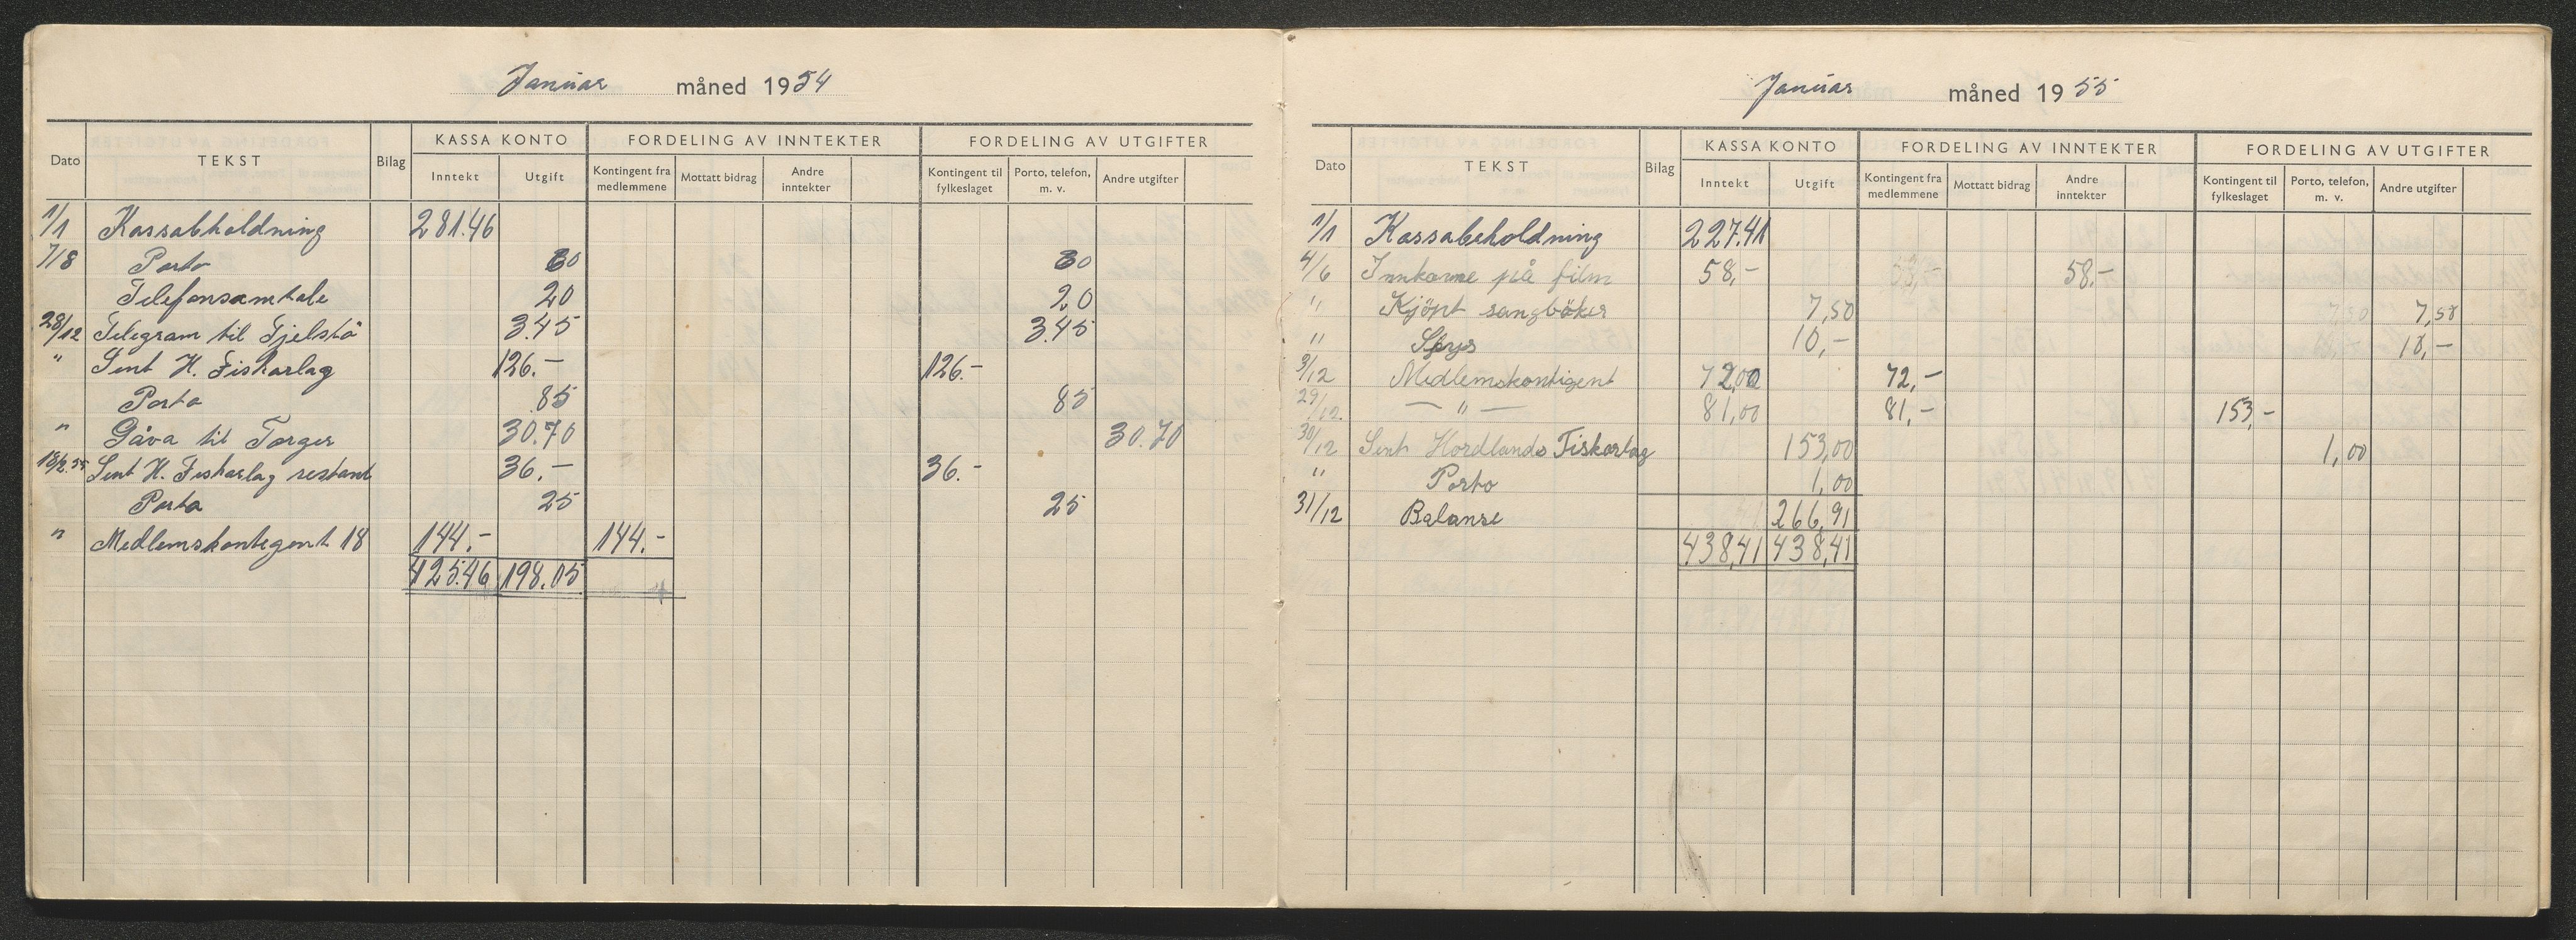 Januar måned 1954
KASSA KONTO FORDELING AV INNTEKTER FORDELING AV UTGIFTER
Dato TEKST Bilag Inntekt Utgift Kontingent fra medlemmene Mottatt bidrag Andre inntekter Kontingent til fylkeslaget Porto, telefon, m. v. Andre utgifter
1/1 Kassabholdning 281.46
7/8 Porto 60 60
Telefonsamtale 20 20
28/12 Telegram til Fjelstö 3.45 3.45
" Sent H. Fiskarlag 126.- 126.-
Porto 85 85
" Gåva til Torger 30.70 30.70
18/2.55 Sent H. Fiskarlag restant 36.- 36.-
Porto 25 25
" Medlemskontegent 18 144.- 144.-
425.46 198.05
Januar måned 1955
KASSA KONTO FORDELING AV INNTEKTER FORDELING AV UTGIFTER
Dato TEKST Bilag Inntekt Utgift Kontingent fra medlemmene Mottatt bidrag Andre inntekter Kontingent til fylkeslaget Porto, telefon, m. v. Andre utgifter
1/1 Kassabeholdning 227.41
4/6 Innkorme på film 58,- 58.-
" Kjöpt sangböker 7,50 7,50
" 10,- 10,-
3/12 Medlemskontigent 72,00 72,-
29/12. — " — 81,00 81,- 153,-
30/12 Sent Hordlands Fiskarlag 153,00 1,00
" Porto 1,00
31/12 Balanse 266,91
438,41 438,41